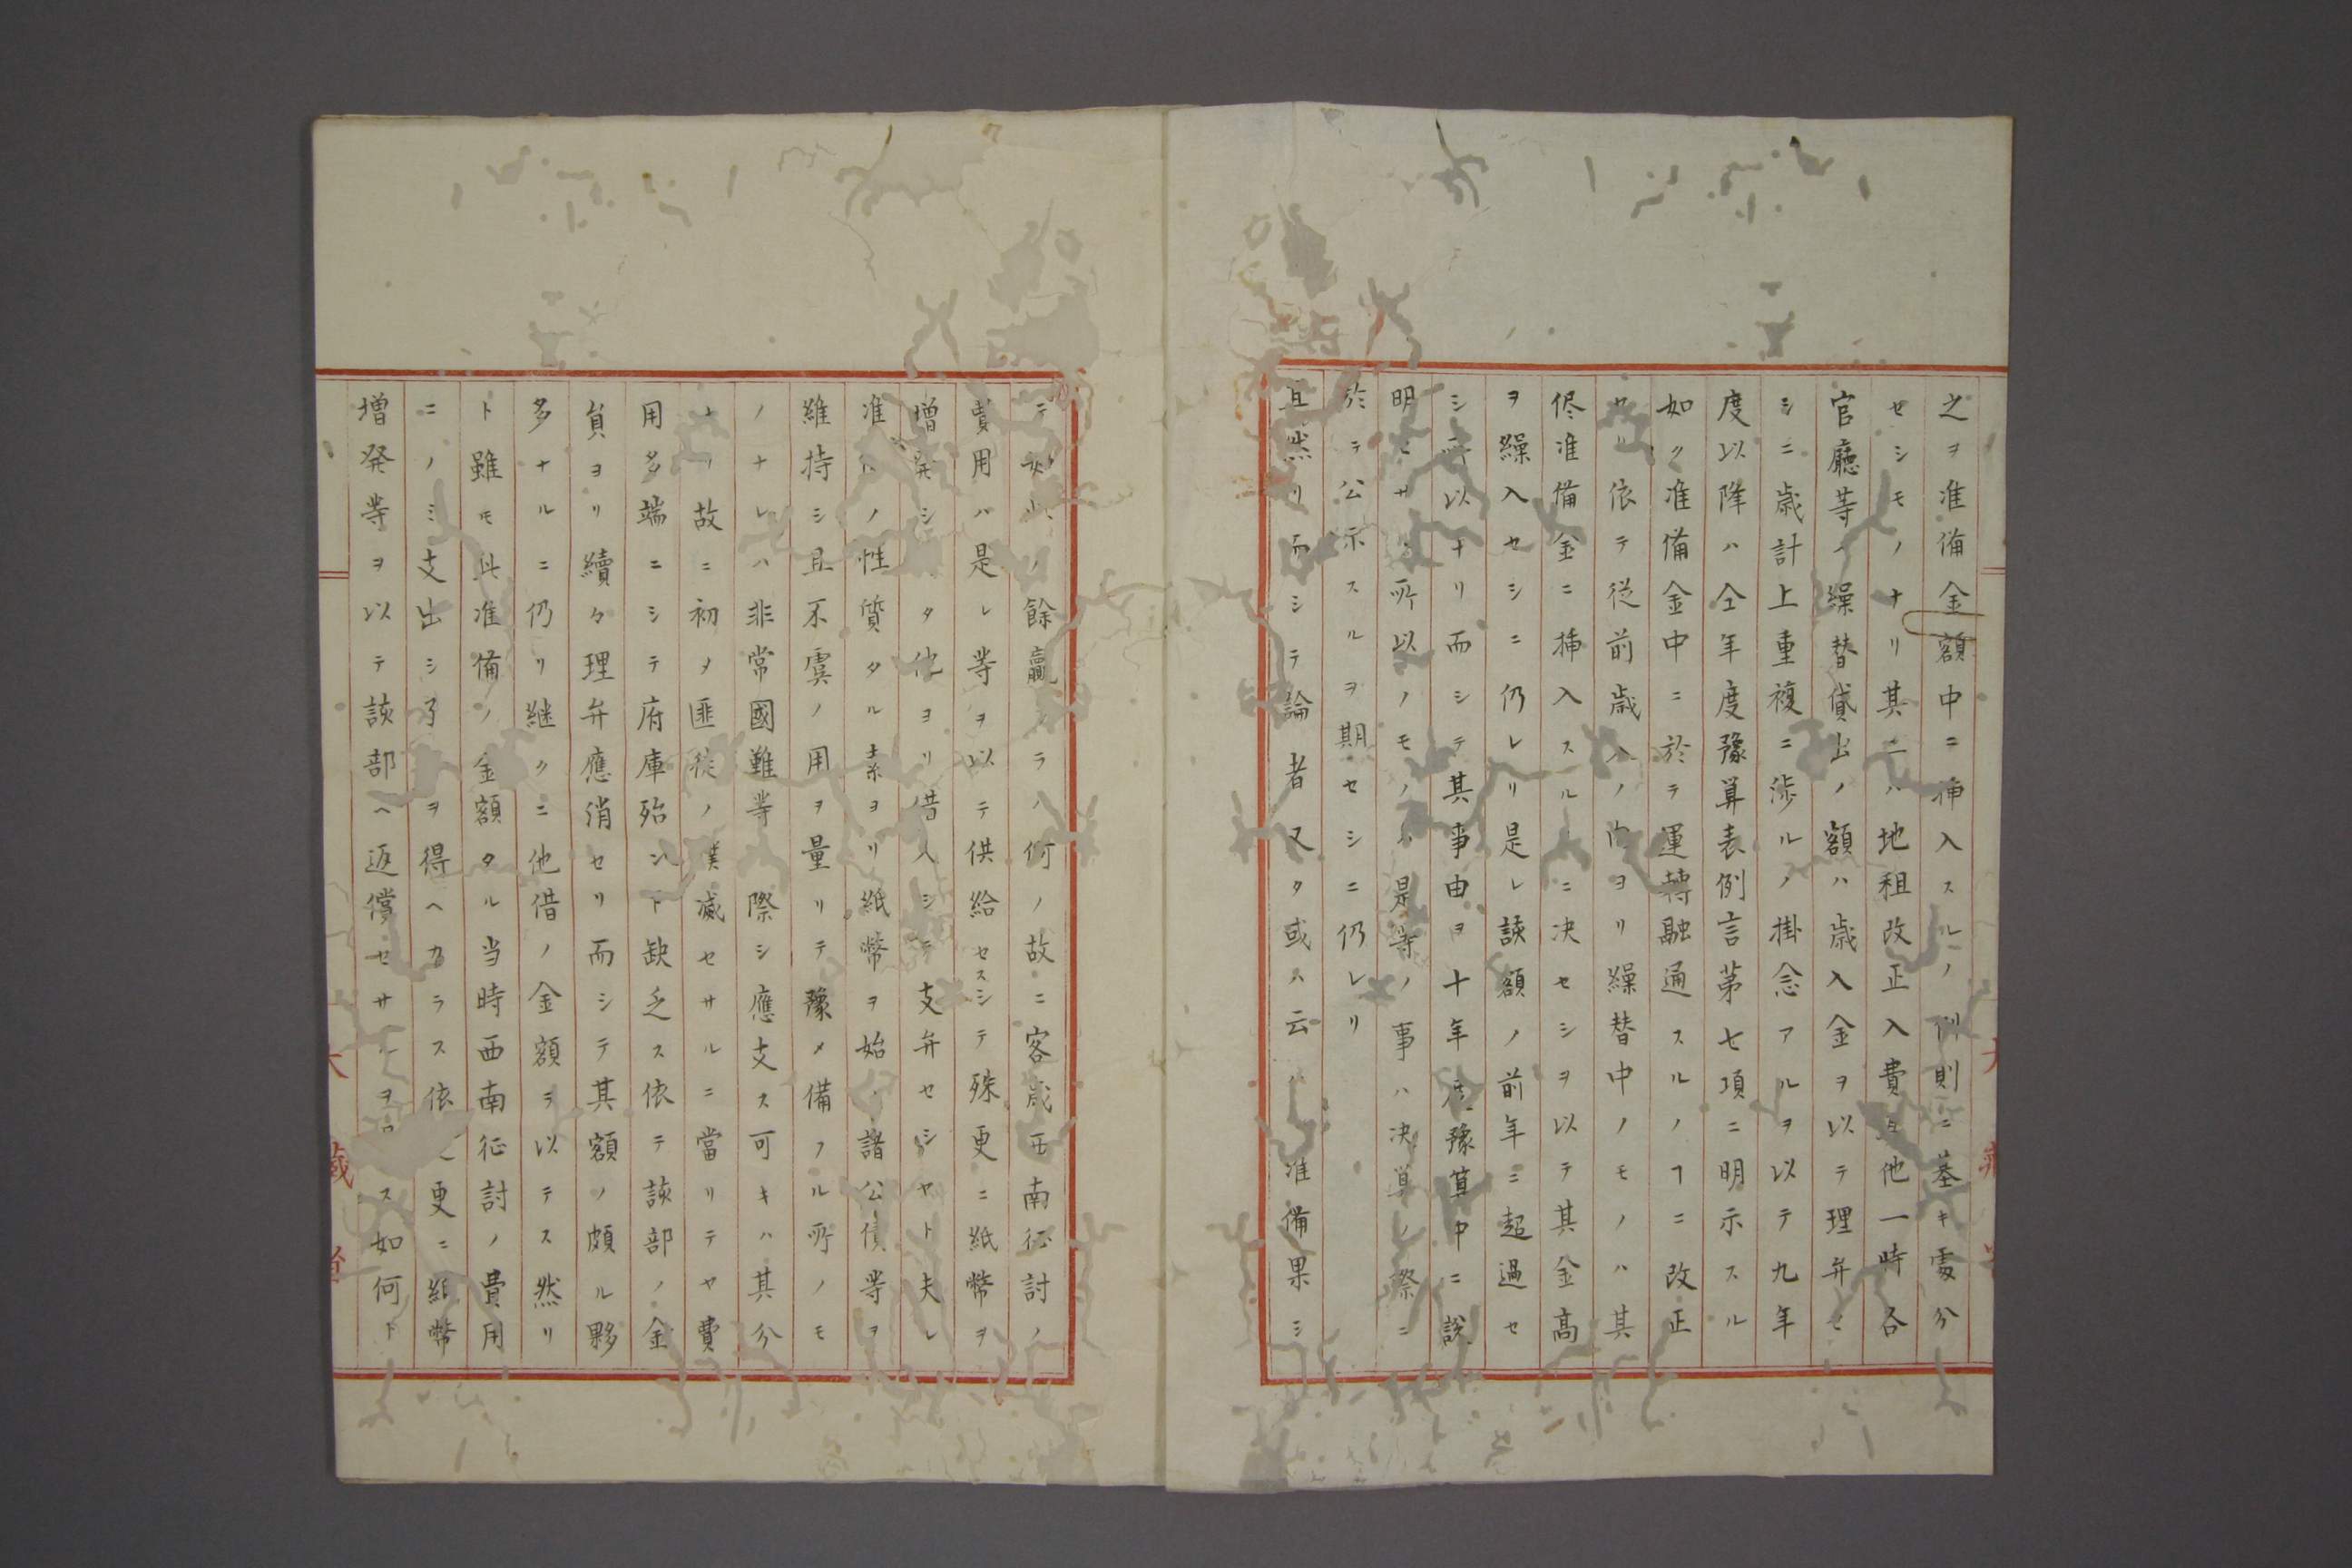 之ヲ准備金額中ニ挿入スルノ例則ニ基キ処分
セシモノナリ其ニハ地租改正入費其他一時各
官廳等ノ繰替貸出ノ額ハ歳入金ヲ以テ理弁セ
シニ歳計上重複ニ渉ルノ掛念アルヲ以テ九年
度以降ハ仝年度豫算表例言第七項ニ明示スル
如ク准備金中ニ於テ運轉融通スルノヿニ改正
セリ依テ従前歳入ノ内ヨリ繰替中ノモノハ其
侭准備金ニ挿入スルニ決セシヲ以テ其金高
ヲ繰入セシニ仍レリ是レ該額ノ前年ニ超過セ
シ所以ナリ而シテ其事由ヲ十年度豫算中ニ説
明セサル所以ノモノハ是等ノ事ハ決算ノ際ニ
於テ公示スルヲ期セシニ仍レリ
且然リ而シテ論者又タ或ハ云ハン准備果シ
テ如此ノ餘贏アラハ何ノ故ニ客歳西南征討ノ
費用ハ是レ等ヲ以テ供給セスシテ殊更ニ紙幣ヲ
増発シ タ他ヨリ借入シテ支弁セシヤト夫レ
准備ノ性質タル素ヨリ紙幣ヲ始メ諸公債等ヲ
維持シ且不虞ノ用ヲ量リテ豫メ備フル所ノモ
ノナレハ非常國難等ノ際シ應支ス可キハ其分
ナリ故ニ初メ匪徒ノ撲滅セサルニ當リテヤ費
用多端ニシテ府庫殆ント缺乏ス依テ該部ノ金
員ヨリ續々理弁應消セリ而シテ其額ノ頗ル夥
多ナルニ仍リ継クニ他借ノ金額ヲ以テス然リ
ト雖モ此准備ノ金額タル当時西南征討ノ費用
ニノミ支出シ了ヲ得ヘカラス依 更ニ紙幣
増発等ヲ以テ該部ヘ返償セサルヲ ス如何ト